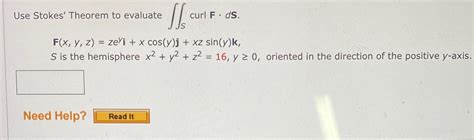 Use Stokes' Theorem to evaluate ∬_S curl F · dS.
F(x, y, z) = ze^y i + x cos(y)j + xz sin(y)k,
S is the hemisphere x² + y² + z² = 16, y ≥ 0, oriented in the direction of the positive y-axis.
Need Help? Read It